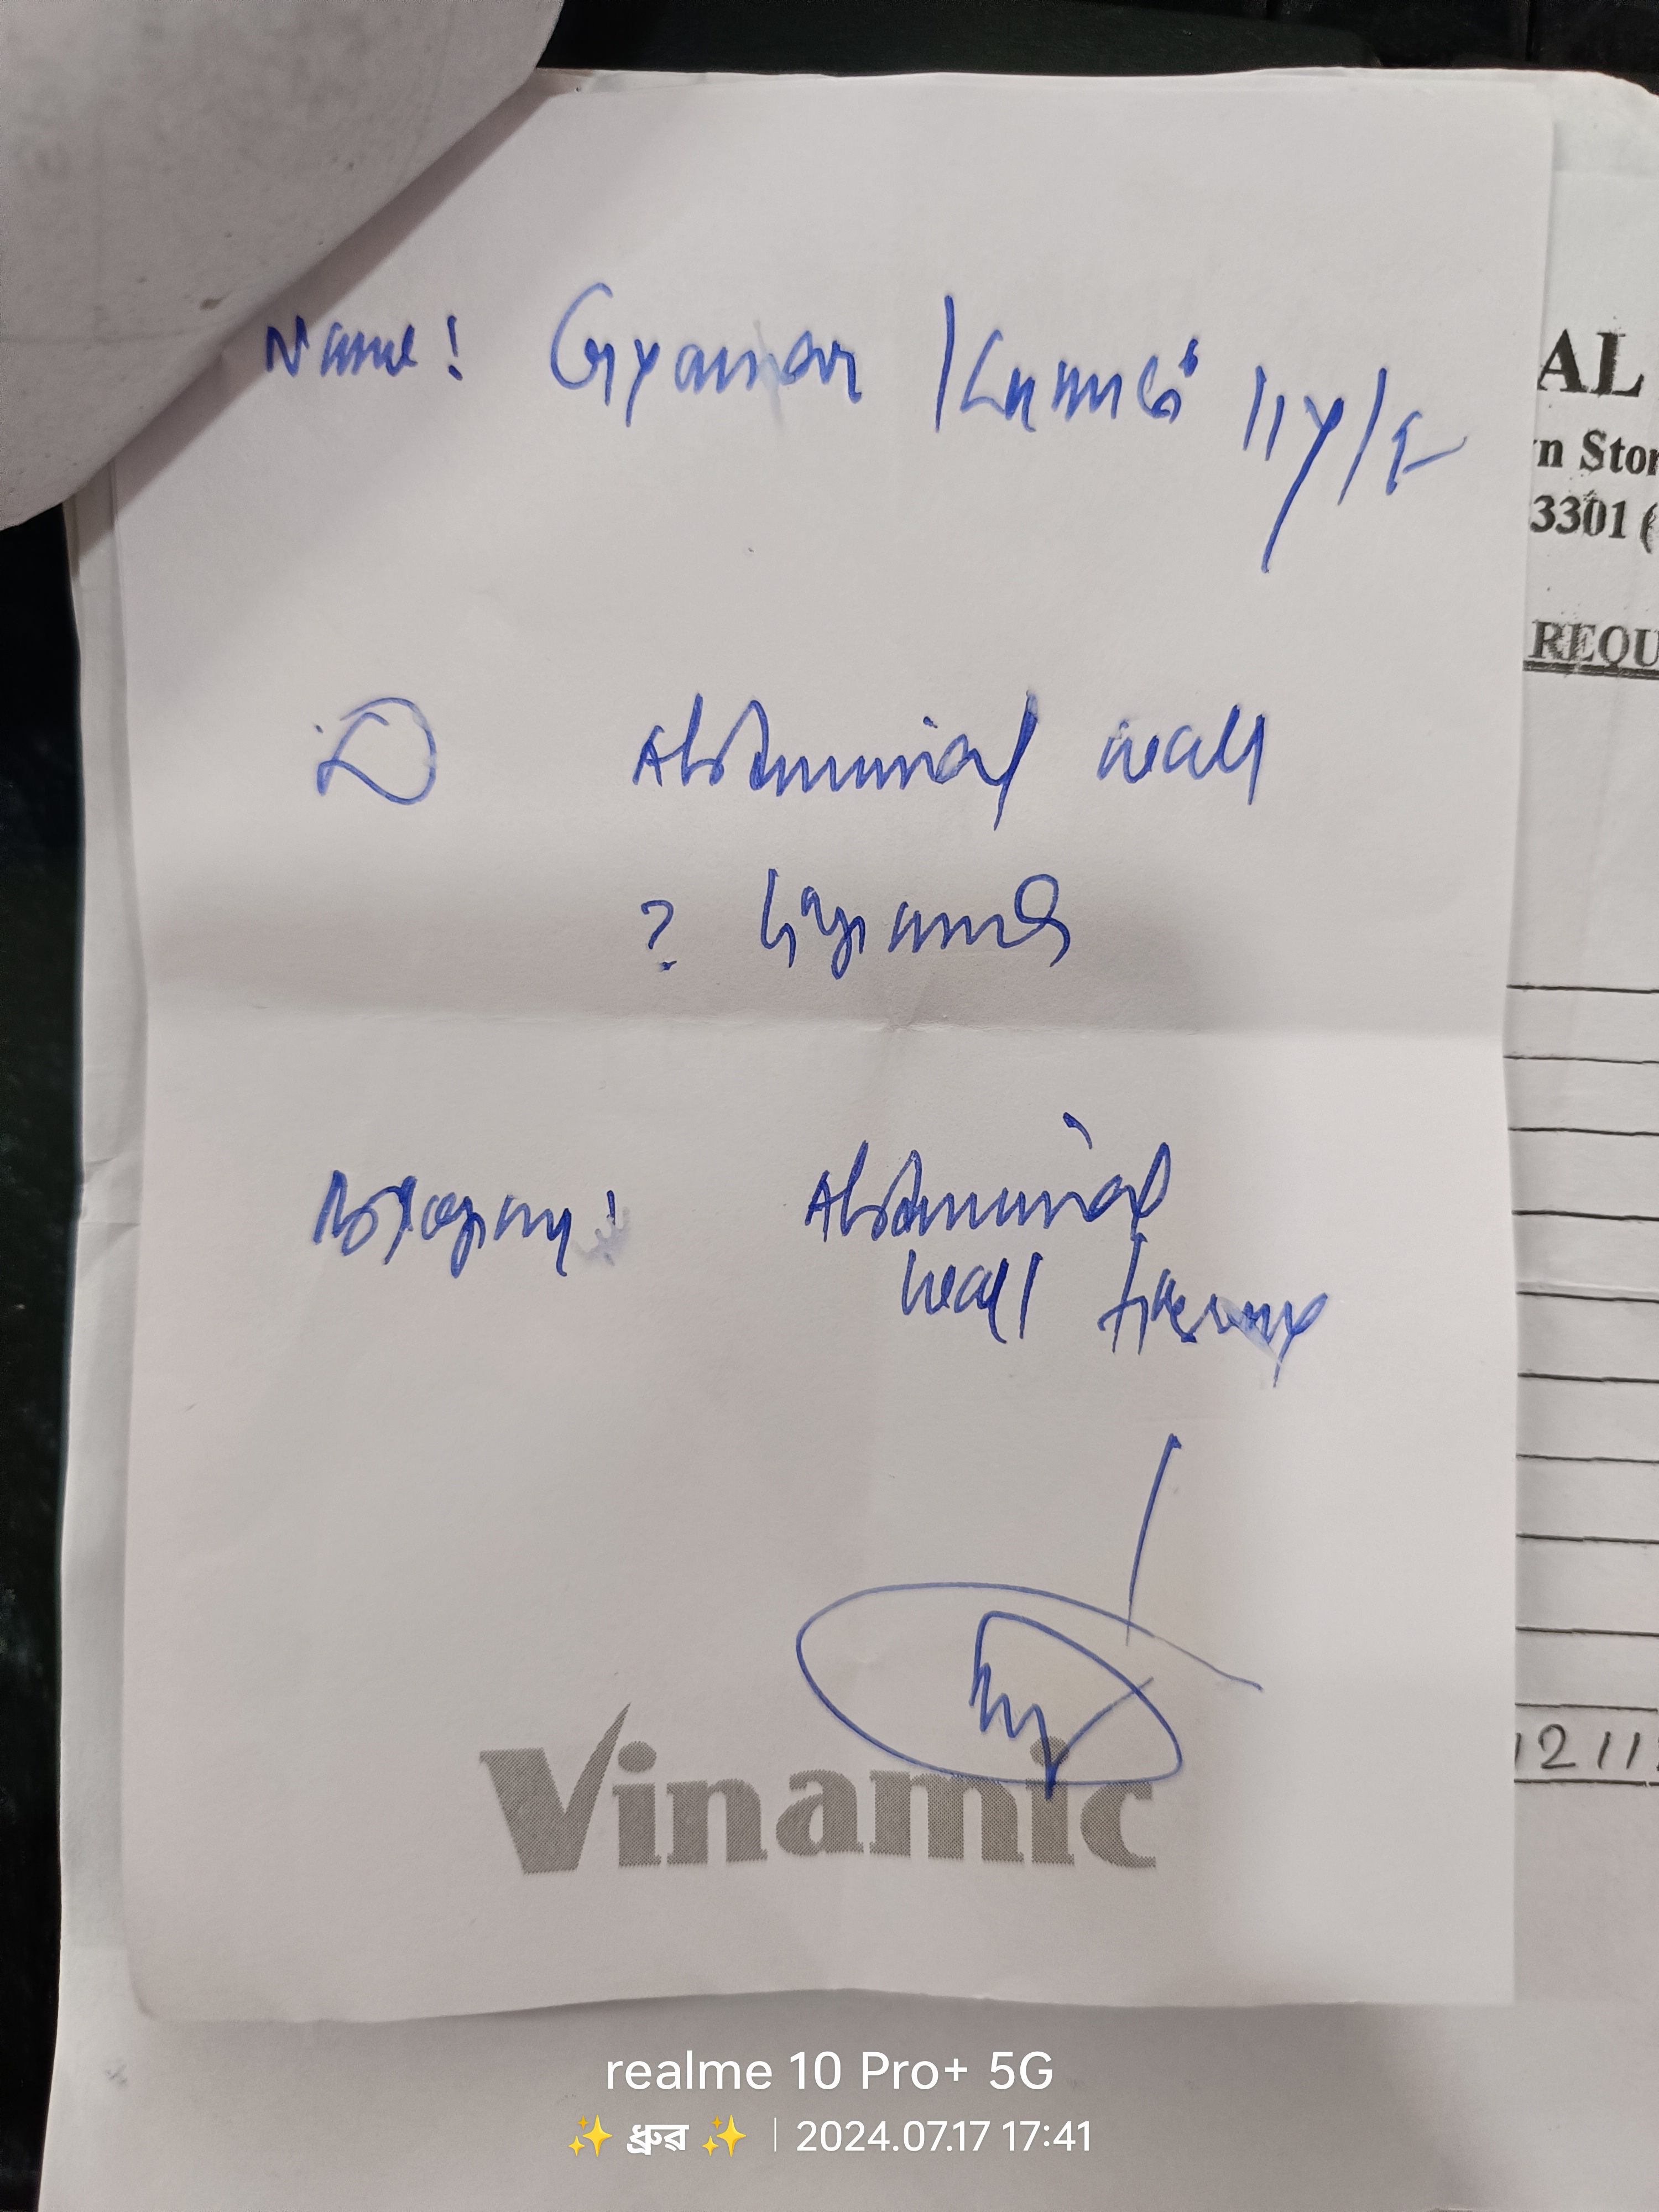 Name: Gyaman Kumari 11y/F
D Abdominal wall
?
Biopsy: Abdominal
wall tissue
Vinamic
AL
n Stor
3301 (
REQU
1211
realme 10 Pro+ 5G
✨ ধ্রুৱ ✨ | 2024.07.17 17:41